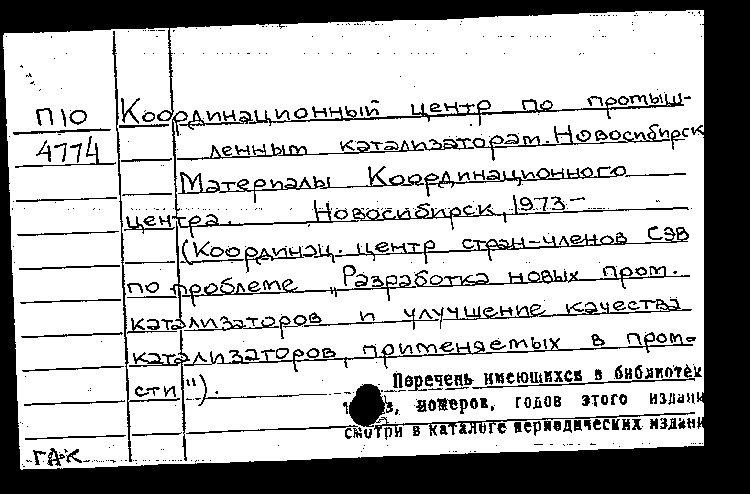 П10 Координационный центр по промыш-
4774 ленным катализаторам. Новосибирск
Материалы Координационного
центра. Новосибирск, 1973-
(Координац. центр стран-членов СЭВ
по проблеме „Разработка новых пром.
катализаторов и улучшение качества
катализаторов, применяемых в пром-
сти").
Перечень имеющихся в библиотек
номеров, годов этого издани
смотри в каталоге периодических издани
ГАК